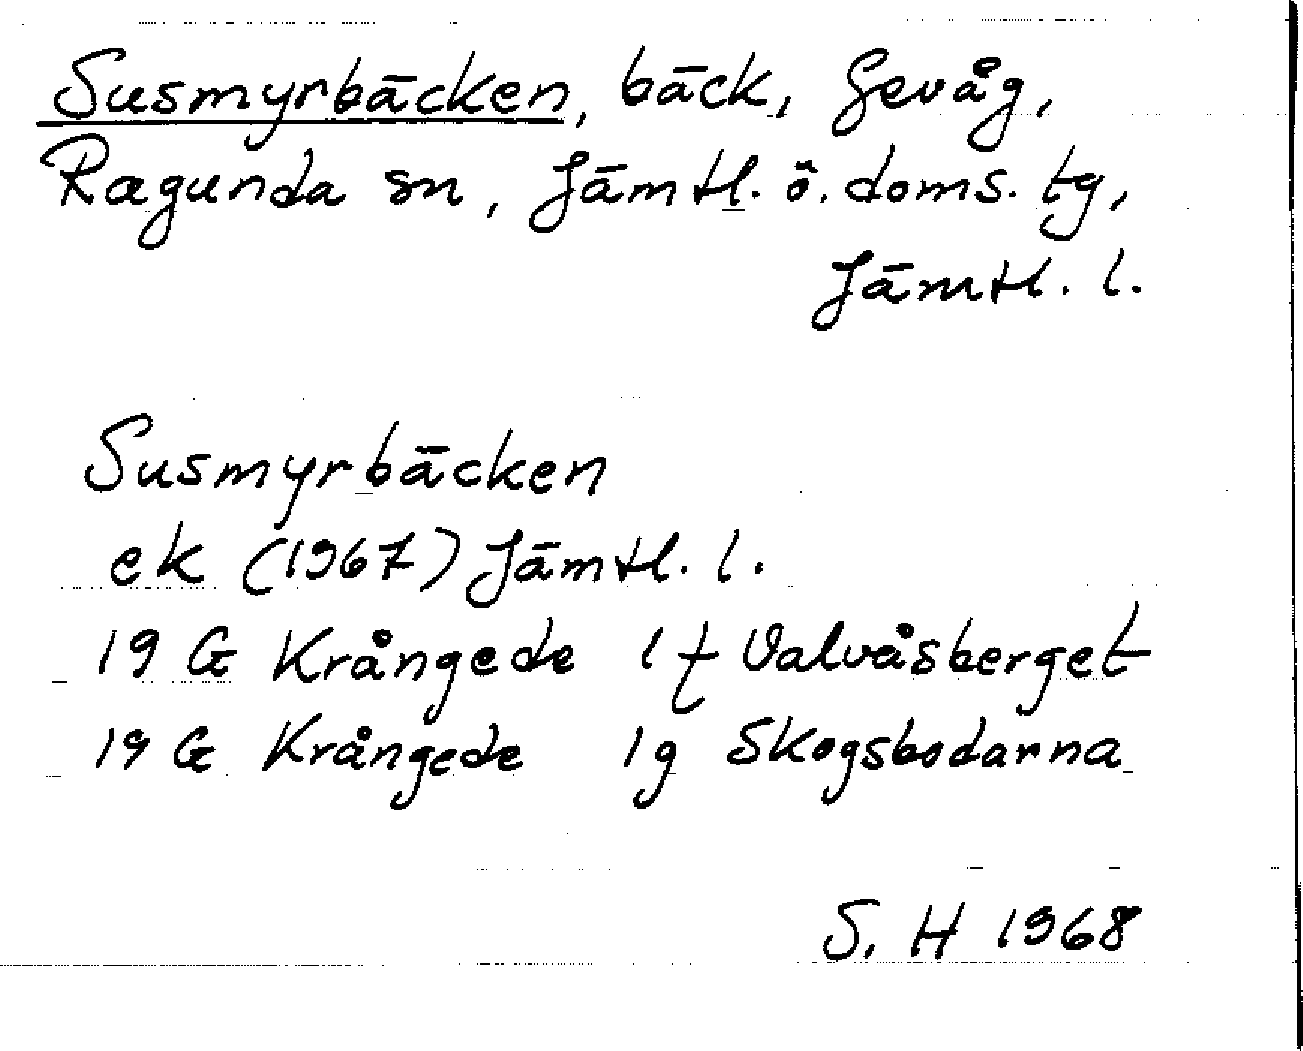 Susmyrbäcken, bäck, Gevåg,
Ragunda sn, Jämtl. ö. doms. tg,
Jämtl. l.
Susmyrbäcken
ek (1967) Jämtl. l.
19 G Krångede 1 f Valvåsberget
19 G Krångede 1g Skogsbodarna
S. H 1968